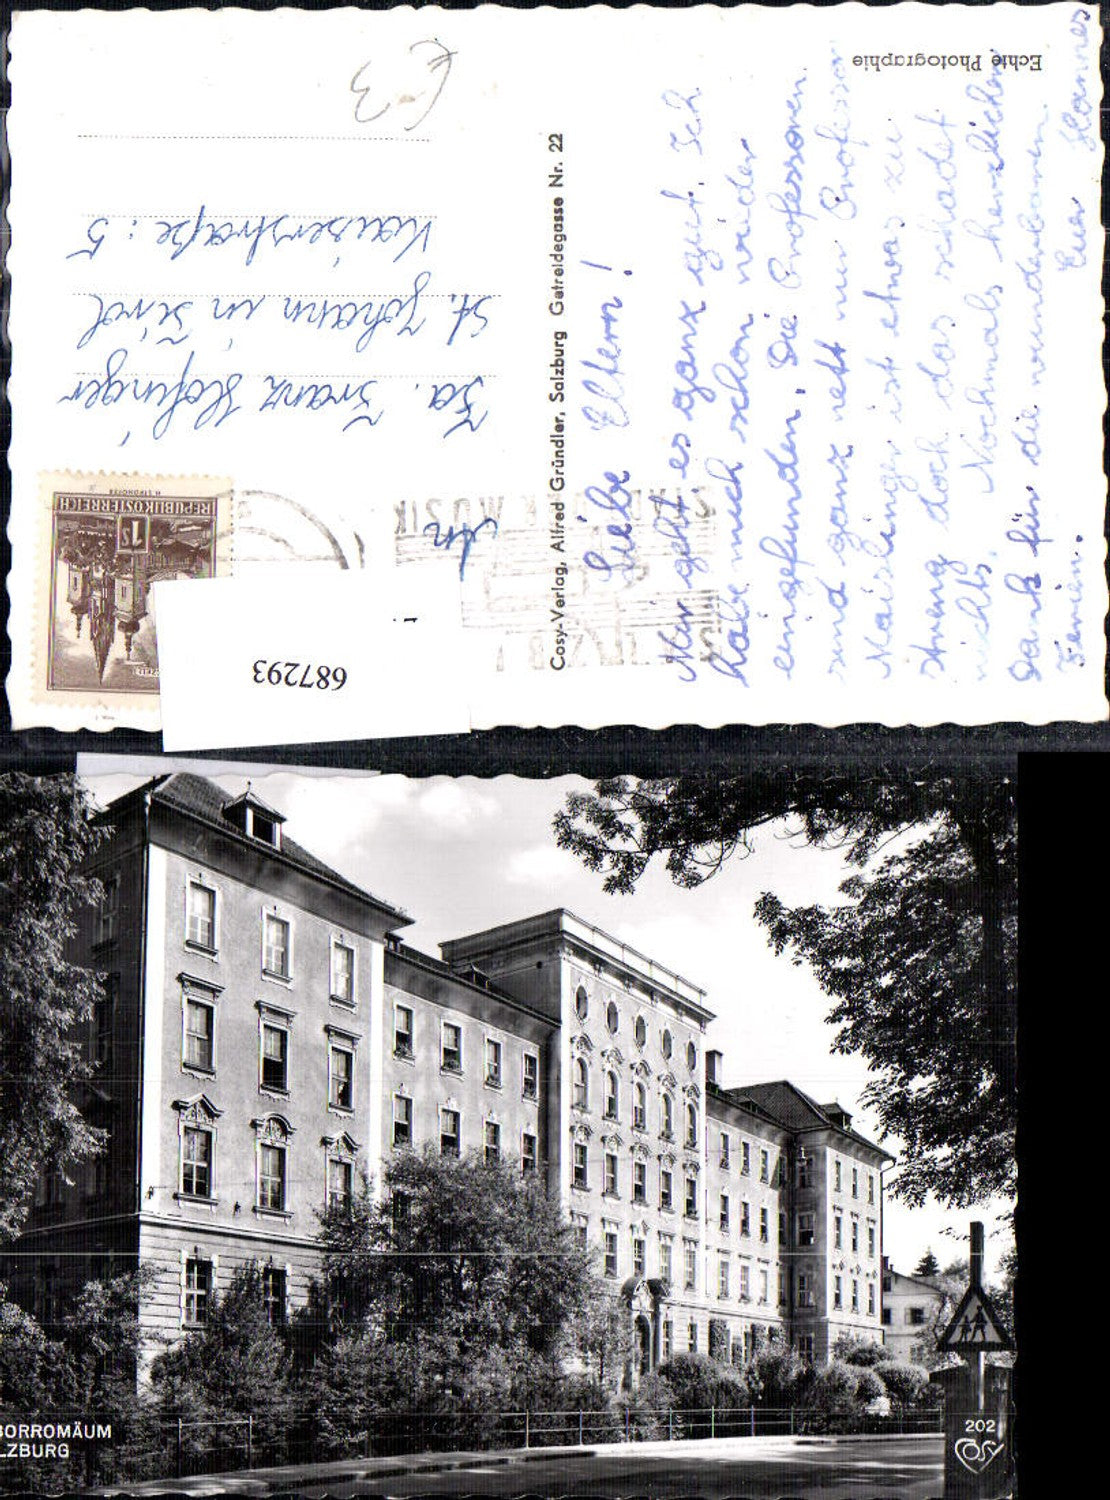 Echte Photographie
Liebe Eltern!
Mir geht es ganz gut. Ich
habe mich schon wieder
eingefunden. Die Professoren
sind ganz nett nur Professor
Maislinger ist etwas zu
streng doch das schadet
nichts. Nochmals herzlichen
Dank für die wunderbaren
Ferien.
Euer Hannes
Cosy-Verlag, Alfred Gründler, Salzburg Getreidegasse Nr. 22
An
Fa. Franz Hofinger
St. Johann in Tirol
Kaiserstraße: 5
€ 3
REPUBLIK ÖSTERREICH
1 S
687293
BORROMÄUM
LZBURG
202
COSY